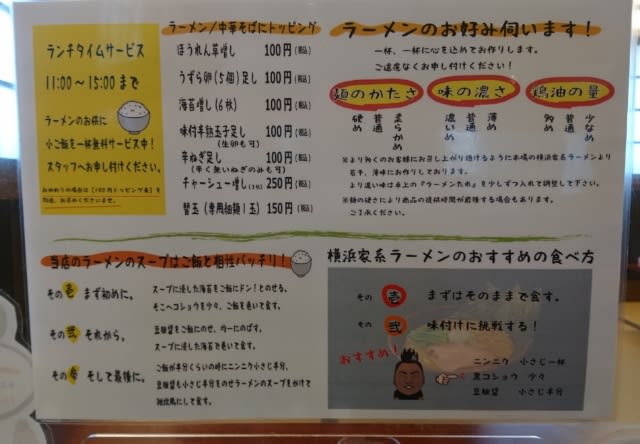 ランチタイムサービス
11:00～15:00まで
ラーメンのお供に
小ご飯を一杯無料サービス中！
スタッフへお申し付けください。
ラーメン/中華そばにトッピング
ほうれん草増し 100円(税込)
うずら卵(5個)足し 100円(税込)
海苔増し(6枚) 100円(税込)
味付半熟玉子足し 100円(税込)
(生卵も可)
辛ねぎ足し 100円(税込)
(辛く無いねぎのみも可)
チャーシュー増し 250円(税込)
替玉(専用細麺1玉) 150円(税込)
ラーメンのお好み伺います！
一杯、一杯に心を込めてお作りします。
ご遠慮なくお申し付けください！
麺のかたさ 味の濃さ 鶏油の量
硬め 普通 柔らかめ 濃いめ 普通 薄め 多め 普通 少なめ
※より多くのお客様にお召し上がり頂けるように本場の横浜家系ラーメンより
若干、薄味にお作りしております。
より濃い味は卓上の『ラーメンたれ』を少しずつ入れて調整して下さい。
※麺の硬さにより商品の提供時間が前後する場合もあります。
ご了承ください。
当店のラーメンのスープはご飯と相性バッチリ！
その壱 まず初めに。 スープに浸した海苔をご飯にドン！とのせる。
そこへコショウを少々、ご飯を巻いて食す。
その弐 それから。 豆板醤をご飯にのせ、均一にのばす。
スープに浸した海苔で巻いて食す。
その参 そして最後に。 ご飯が半分くらいの時にニンニク小さじ半分、
豆板醤も小さじ半分をのせラーメンのスープをかけて
雑炊風にして食す。
横浜家系ラーメンのおすすめの食べ方
その 壱 まずはそのままで食す。
その 弐 味付けに挑戦する！
おすすめ！
ニンニク 小さじ一杯
黒コショウ 少々
豆板醤 小さじ半分